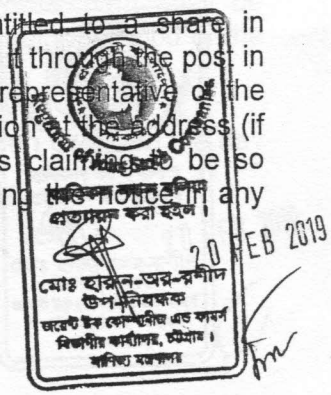 ntitled to a share in
it through the post in
representative of the
ion at the address (if
s claiming to be so
ng this notice in any
Registrar of Joint Stock Companies
প্রত্যায়ন করা হইল।
20 FEB 2019
মোঃ হারুন-অর-রশীদ
উপ-নিবন্ধক
জয়েন্ট স্টক কোম্পানীজ এন্ড ফার্মস
বিভাগীয় কার্যালয়, চট্টগ্রাম।
বাণিজ্য মন্ত্রণালয়